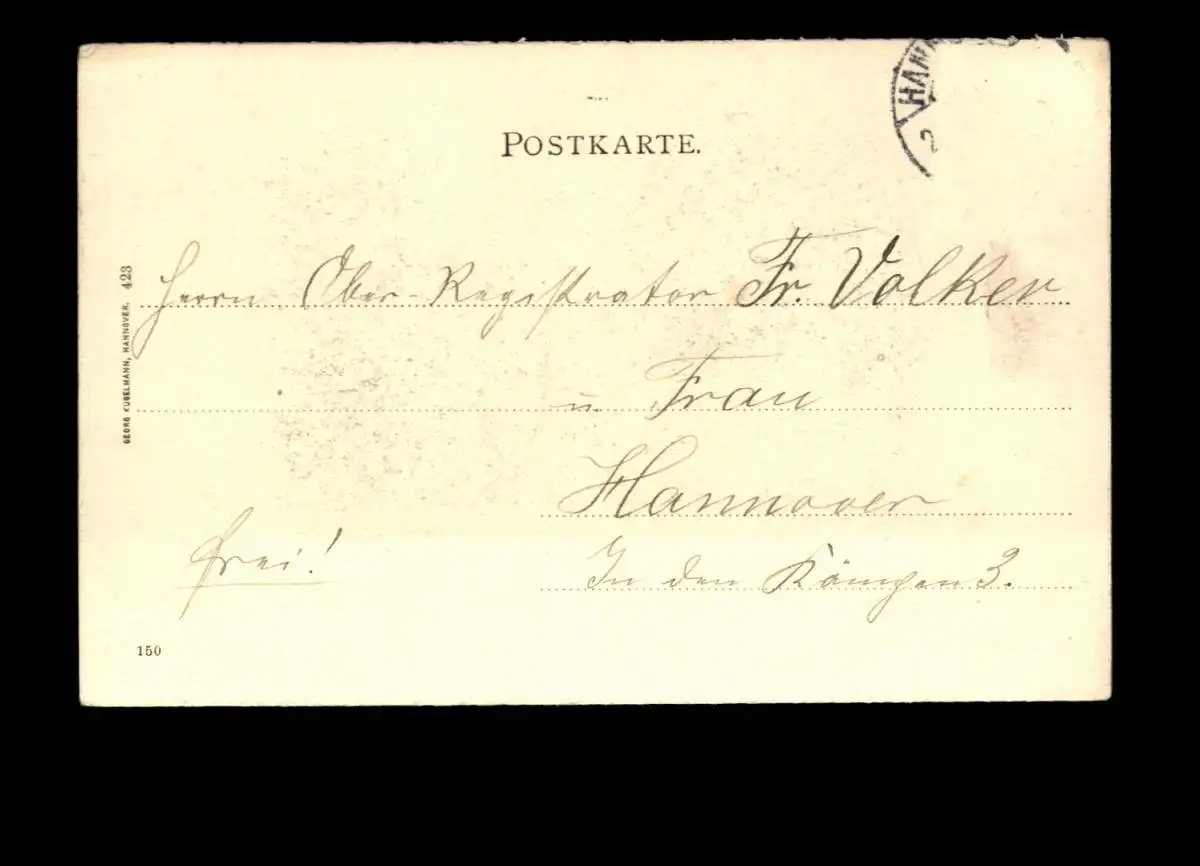 POSTKARTE.
HANN
2
Herrn Ober-Registrator Fr. Volker
u. Frau
Hannover
In den Kämpen 3.
frei!
GEORG KUGELMANN, HANNOVER. 423
150